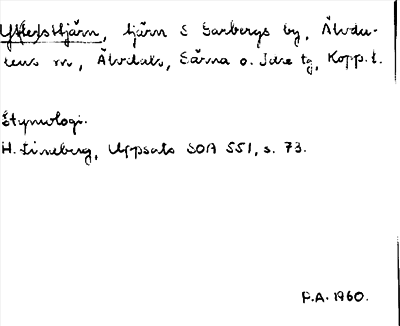 tjärn S Garbergs by, Älvda-
lens sn, Älvdals, Särna o. Idre tg, Kopp. l.
Etymologi.
H. Lineberg, Uppsats SOA 551, s. 73.
P.A. 1960.